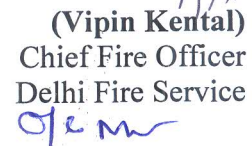 (Vipin Kental)
Chief Fire Officer
Delhi Fire Service